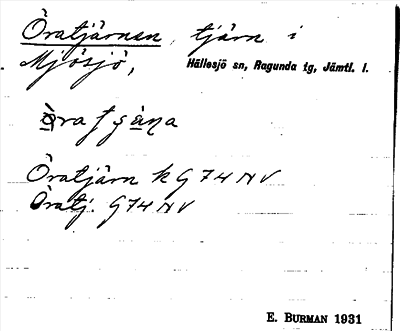 Öratjärnen, tjärn i
Mjösjö, Hällesjö sn, Ragunda tg, Jämtl. l.
Öratjärn k G 74 NV
Öratj. G74 NV
E. BURMAN 1931